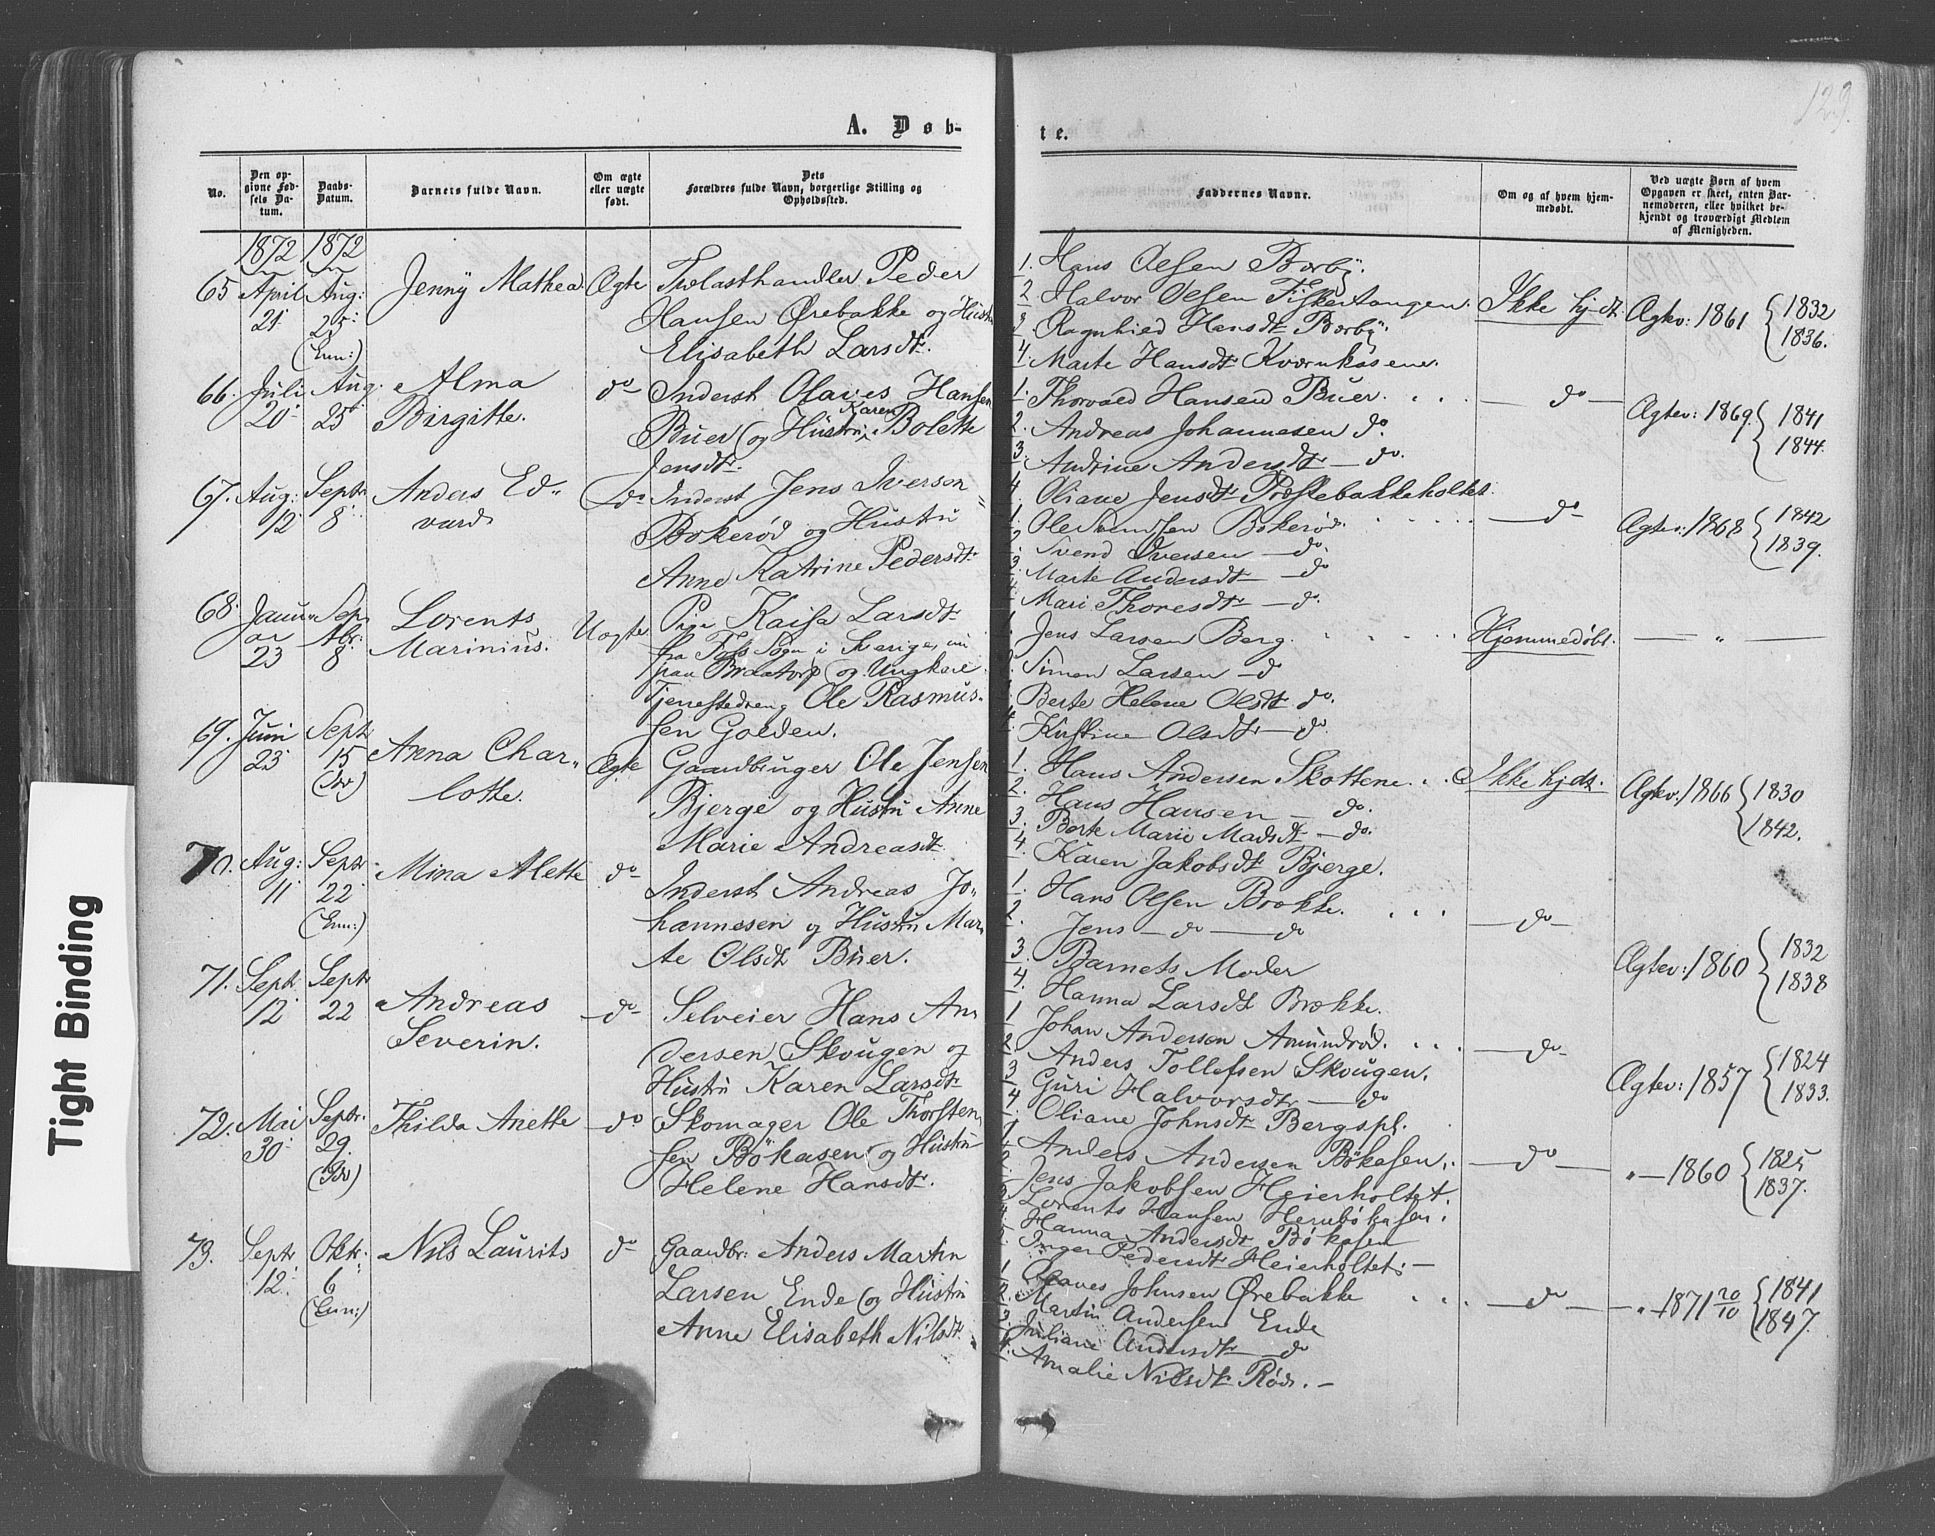 129.
A. Døb-
te.
No.
Den op-
givne Fød-
sels Da-
tum.
Daabs-
Datum.
Barnets fulde Navn.
Om ægte
eller uægte
født.
Dets
Forældres fulde Navn, borgerlige Stilling og
Opholdssted.
Faddernes Navne.
Om og af hvem hjem-
medøbt.
Ved uægte Børn af hvem
Opgaven er skeet, enten Bar-
nemoderen, eller hvilket be-
kjendt og troværdigt Medlem
af Menigheden.
1872 1872
65 April 21 Aug: 25 (Enn:)
Jenny Mathea
Ægte
Trælasthandler Peder
Hansen Ørebakke og Hustr
Elisabeth Larsdtr.
1. Hans Olsen Borby.
2 Halvor Olsen Fiskertangen.
3. Ragnhild Hansdtr Borby.
4. Marte Hansdtr
Ikke hjdt.
Ægtev: 1861 { 1832
1836.
66. Juli 20 Aug. 25
Alma
Birgitte.
do
Inderst Olaves Hansen
Buer (og Hustru Karen Bolette
Jensdtr.
1. Thorvald Hansen Buer.
2. Andreas Johannesen do.
3. Andrine Andersdtr — do.
4. Oliane Jensdtr Præstebakkeholtet.
— do —
Ægtev: 1869. { 1841
1844.
67. Aug: 12 Septr 8
Anders Ed-
vard
do
Inderst Jens Iversen
Bokerød og Hustru
Anne Katrine Pedersdtr
1. Ole Bokerød.
2. Svend Iversen — do.
3. Marte Andersdtr — do
4. Mari Thoresdtr — do.
— do —
Ægtev: 1868 { 1842
1839.
68. Januar 23 Septbr: 8
Lorents
Marinius.
Uægte
Pige Kaisa Larsdtr
fra Foss Sogn i Sverige, nu
paa Braatorp (og Ungkarl
Tjenestedreng Ole Rasmus-
sen Golden.
1. Jens Larsen Berg.
2. Simon Larsen — do
3. Berte Helene Olsdtr do.
4. Kristine Olsdtr — do.
Hjemmedøbt.
— " —
69. Juni 23 Septr 15
Anna Char-
lotte.
Ægte
Gaardbruger Ole Jensen
Bjerge og Hustru Anne
Marie Andreasdtr
1. Hans Andersen Skottene.
2. Hans Hansen — do.
3. Berte Marie Madsdtr — do.
4. Karen Jakobsdtr Bjerge.
Ikke hjdt.
Ægtev: 1866 { 1830
1842.
70. Aug: 11 Septr 22 (Enn:)
Mina Alette
do
Inderst Andreas Jo-
hannesen og Hustru Mar-
te Olsdtr Buer.
1. Hans Olsen Brække.
2. Jens — do — do
3. Barnets Moder
4. Hanna Larsdtr Brække.
— do —
Ægtev: 1860 { 1832
1838
71. Septr 12 Septr 22
Andreas
Severin.
— do —
Selveier Hans An-
dersen Skougen og
Hustru Karen Larsdtr
1 Johan Andersen Amundrød.
2 Anders Tollefsen Skougen.
3 Guri Halvorsdtr — do
4. Oliane Johnsdtr Bergspl.
— do —
Ægtev: 1857 { 1824
1833.
72. Mai 30 Septr: 29.
Thilda Anette
— do
Skomager Ole Thorsten-
sen Bökasen og Hustru
Helene Hansdtr.
1 Anders Andersen Bökasen.
2. Jens Jakobsen Heierholtet.
3 Lorents Hansen
4. Hanna Andersdtr Bökasen
5. Inger Pedersdtr Heierholtet. —
— do —
" — 1860 { 1825
1837.
73. Septr. 12. Oktr: 6 (Enn:)
Nils Laurits
do
Gaardbr: Anders Martin
Larsen Ende (og Hustru
Anne Elisabeth Nilsdtr.
1 Olaves Johnsen Ørebakke
2. Martin Andersen Ende
3. Juliane Andersdtr — do
4. Amalie Nilsdtr Röd. —
— do —
" — 1871 20/10 { 1841
1847.
Tight Binding